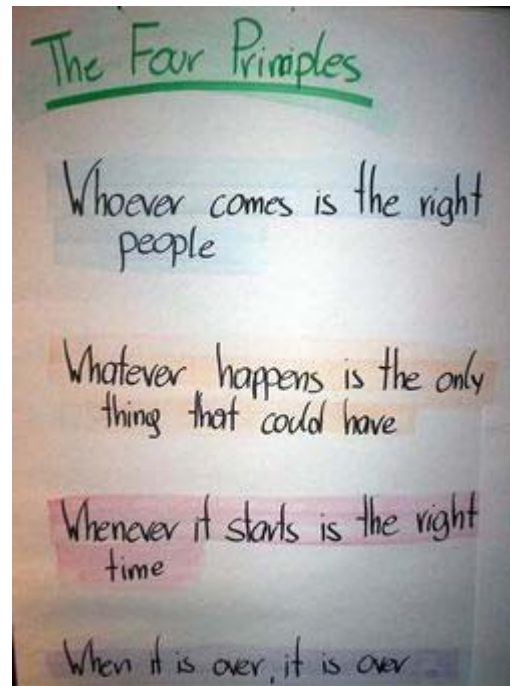 The Four Priniples
Whoever comes is the right
people
Whatever happens is the only
thing that could have
Whenever it starts is the right
time
When it is over, it is over